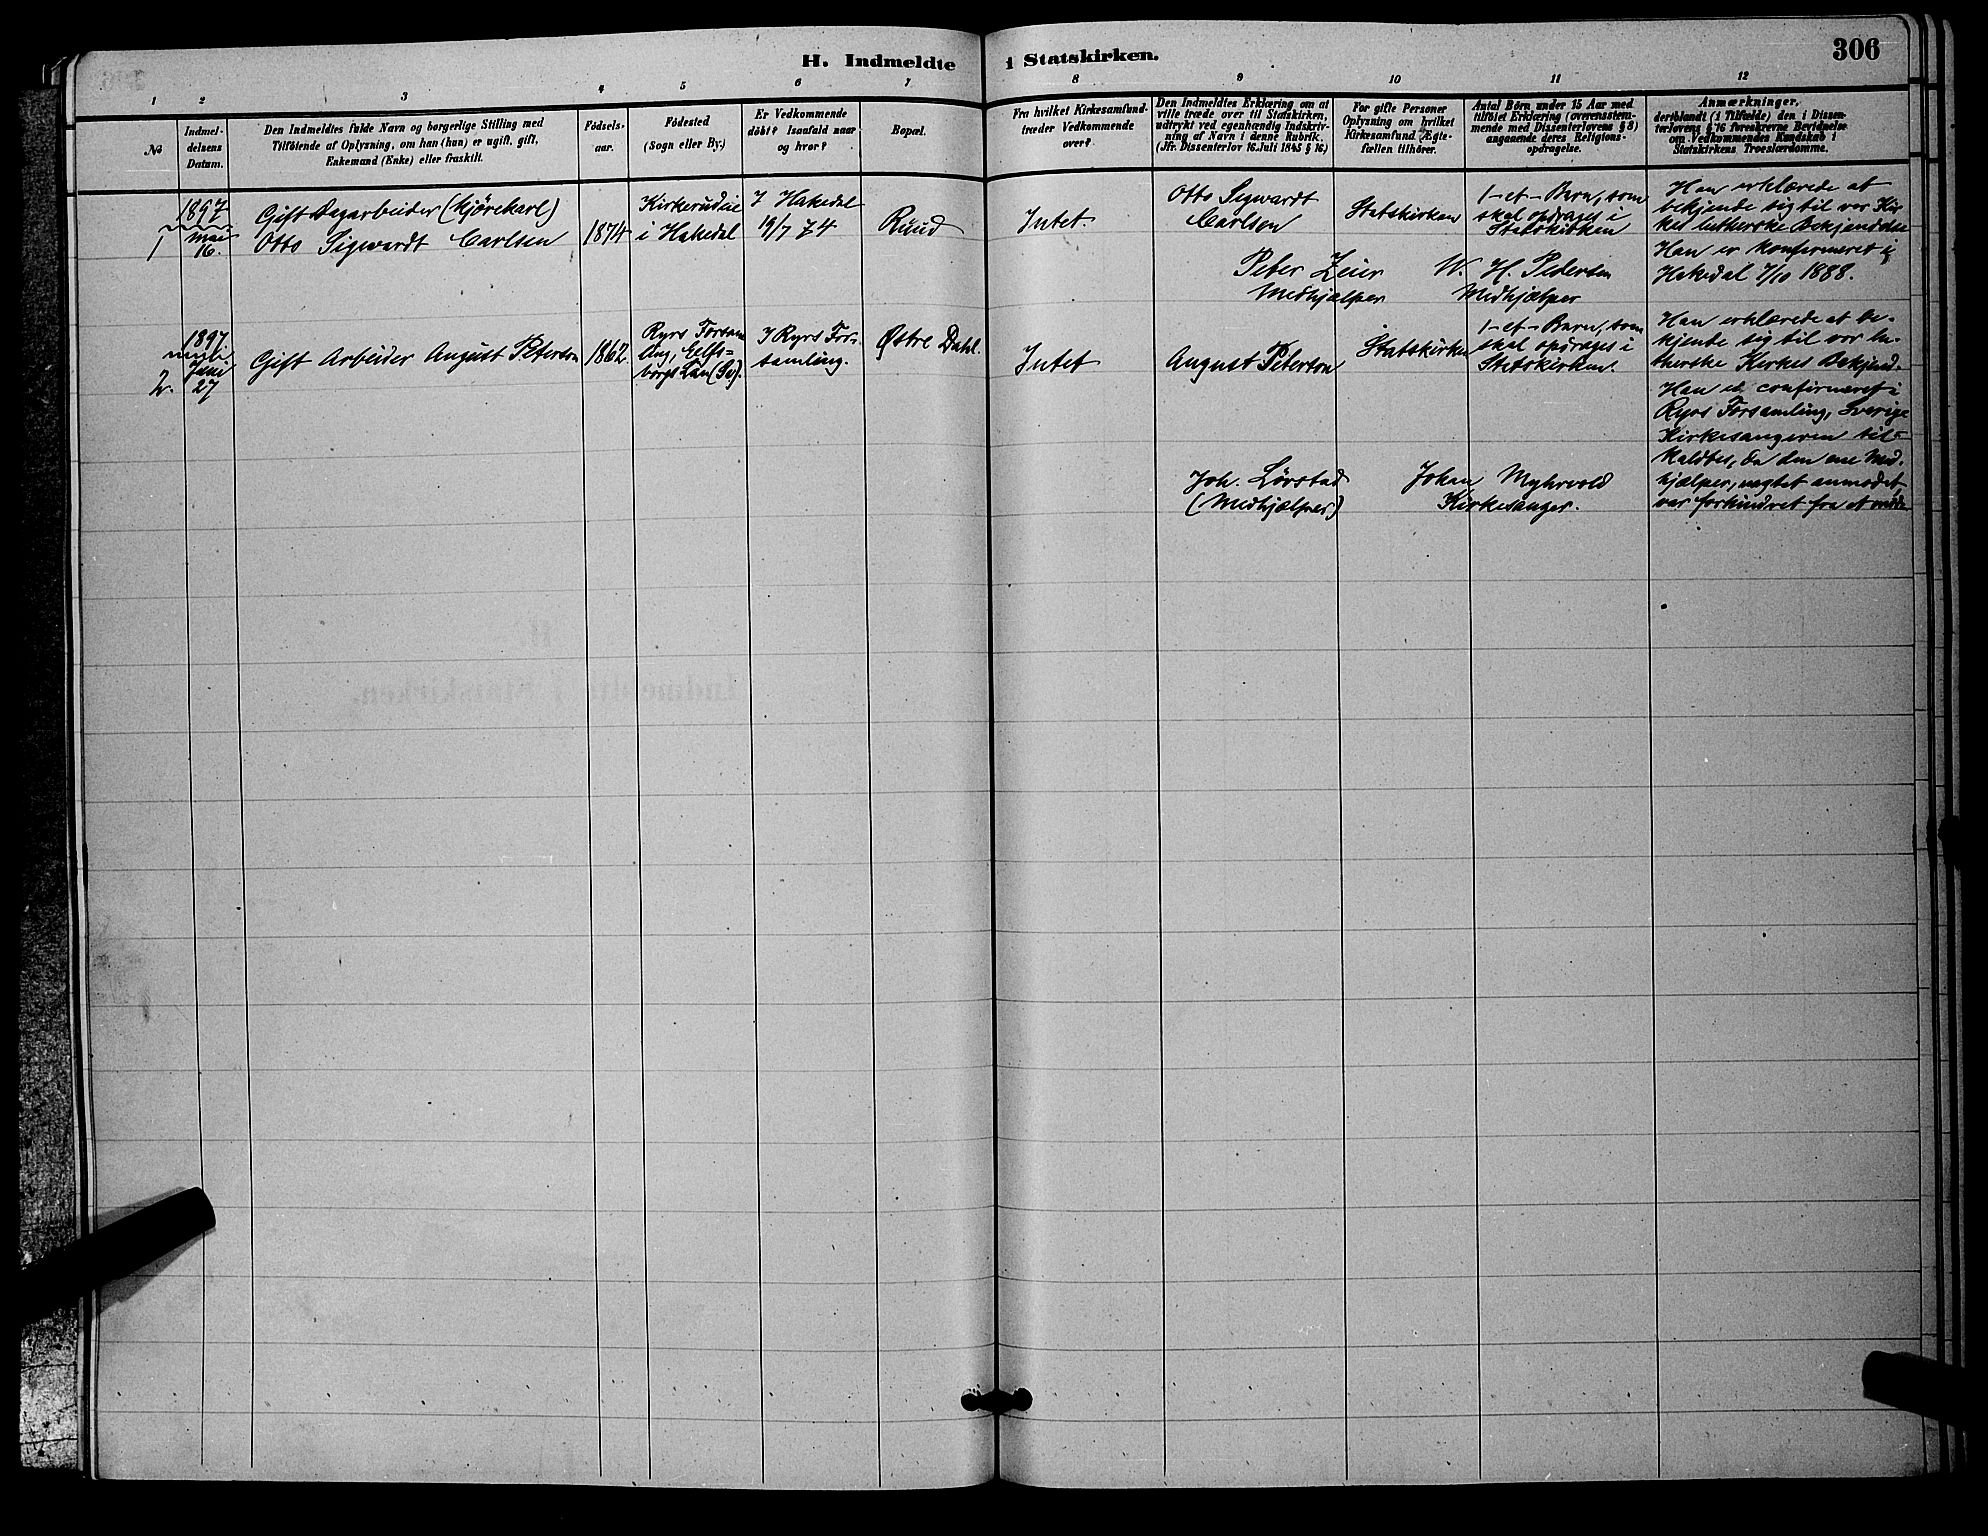 H. Indmeldte i Statskirken.
306
1 2 3 4 5 6 7 8 9 10 11 12
№
Indmel-
delsens
Datum.
Den Indmeldtes fulde Navn og borgerlige Stilling med
Tilföiende af Oplysning, om han (hun) er ugift, gift,
Enkemand (Enke) eller fraskilt.
Födsels-
aar.
Födested
(Sogn eller By.)
Er Vedkommende
döbt? Isaafald naar
og hvor?
Bopæl.
Fra hvilket Kirkesamfund
træder Vedkommende
over?
Den Indmeldtes Erklæring om at
ville træde over til Statskirken,
udtrykt ved egenhændig Indskriv-
ning af Navn i denne Rubrik.
(Jfr. Dissenterlov 16. Juli 1845 § 16.)
For gifte Personer
Oplysning om hvilket
Kirkesamfund Ægte-
fællen tilhörer.
Antal Börn under 15 Aar med
tilföiet Erklæring (overensstem-
mende med Dissenterlovens § 8)
angaaende deres Religions-
opdragelse.
Anmærkninger,
deriblandt (i Tilfælde) den i Dissen-
terlovens § 16 foreskrevne Bevidnelse
om Vedkommendes Kundskab i
Statskirkens Troeslærdomme.
1
1897
mai
16.
Gift Dagarbeider (Kjørekarl)
Otto Sigwardt Carlsen
1874
Kirkerudeie
i Hakedal
I Hakedal
19/7 74
Ruud
Intet.
Otto Sigwardt
Carlson
Statskirken
1-et-Barn, som
skal opdrages i
Statskirken
Han erklærede at
bekjende sig til vor Kir
kes lutherske Bekjendelse
Han er konfirmeret i
Hakedal 7/10 1888.
Peter Zeier
Medhjælper
W. H. Pedersen
Medhjælper
2.
1897
Juni
27
Gift Arbeider August Peterson
1862.
Ryrs Forsam
ling, Elfs-
borgs Län (Sv).
I Ryrs For-
samling.
Østre Dahl.
Intet
August Peterson
Statskirken
1-et-Barn, som
skal opdrages i
Statskirken.
Han erklærede at be-
kjende sig til vor lu-
therske Kirkes Bekjend.
Han er confirmeret i
Ryrs Forsamling, Sverige
Kirkesangeren til-
kaldtes, da den ene Med-
hjælper, uagtet anmodet
var forhindret fra at møde
Joh. Lörstad
(Medhjælper)
Johan Myhrvold
Kirkesanger.